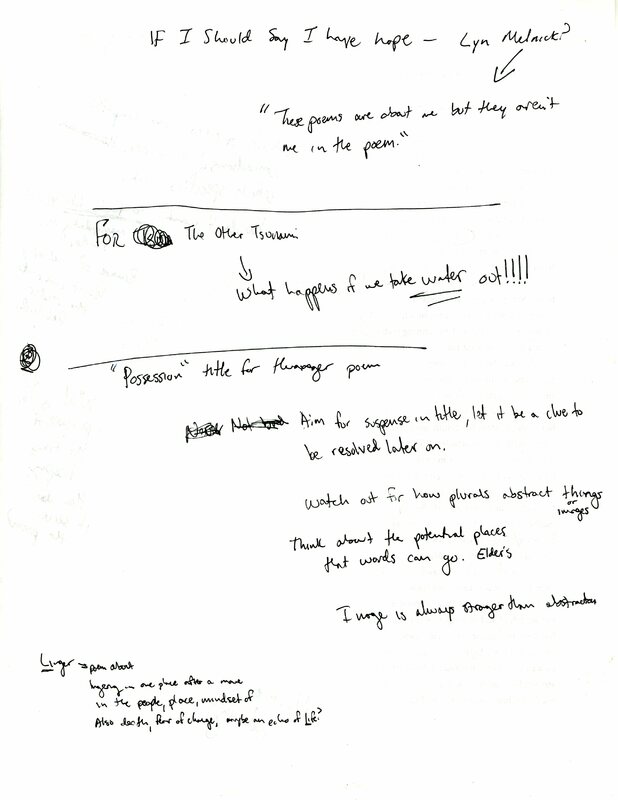 IF I Should Say I have hope - Lyn Melnick?
"These poems are about me but they aren't
me in the poem."
FOR The Other Tsunami
What happens if we take water out!!!!
"Possession" title for poem
Not Aim for suspense in title, let it be a clue to
be resolved later on.
Watch out for how plurals abstract things
or
images
Think about the potential places
that words can go. Elders
Image is always stronger than abstraction
Linger → poem about
lingering in one place after a move
in the people, place, mindset of
Also death, fear of change, maybe an echo of Life?